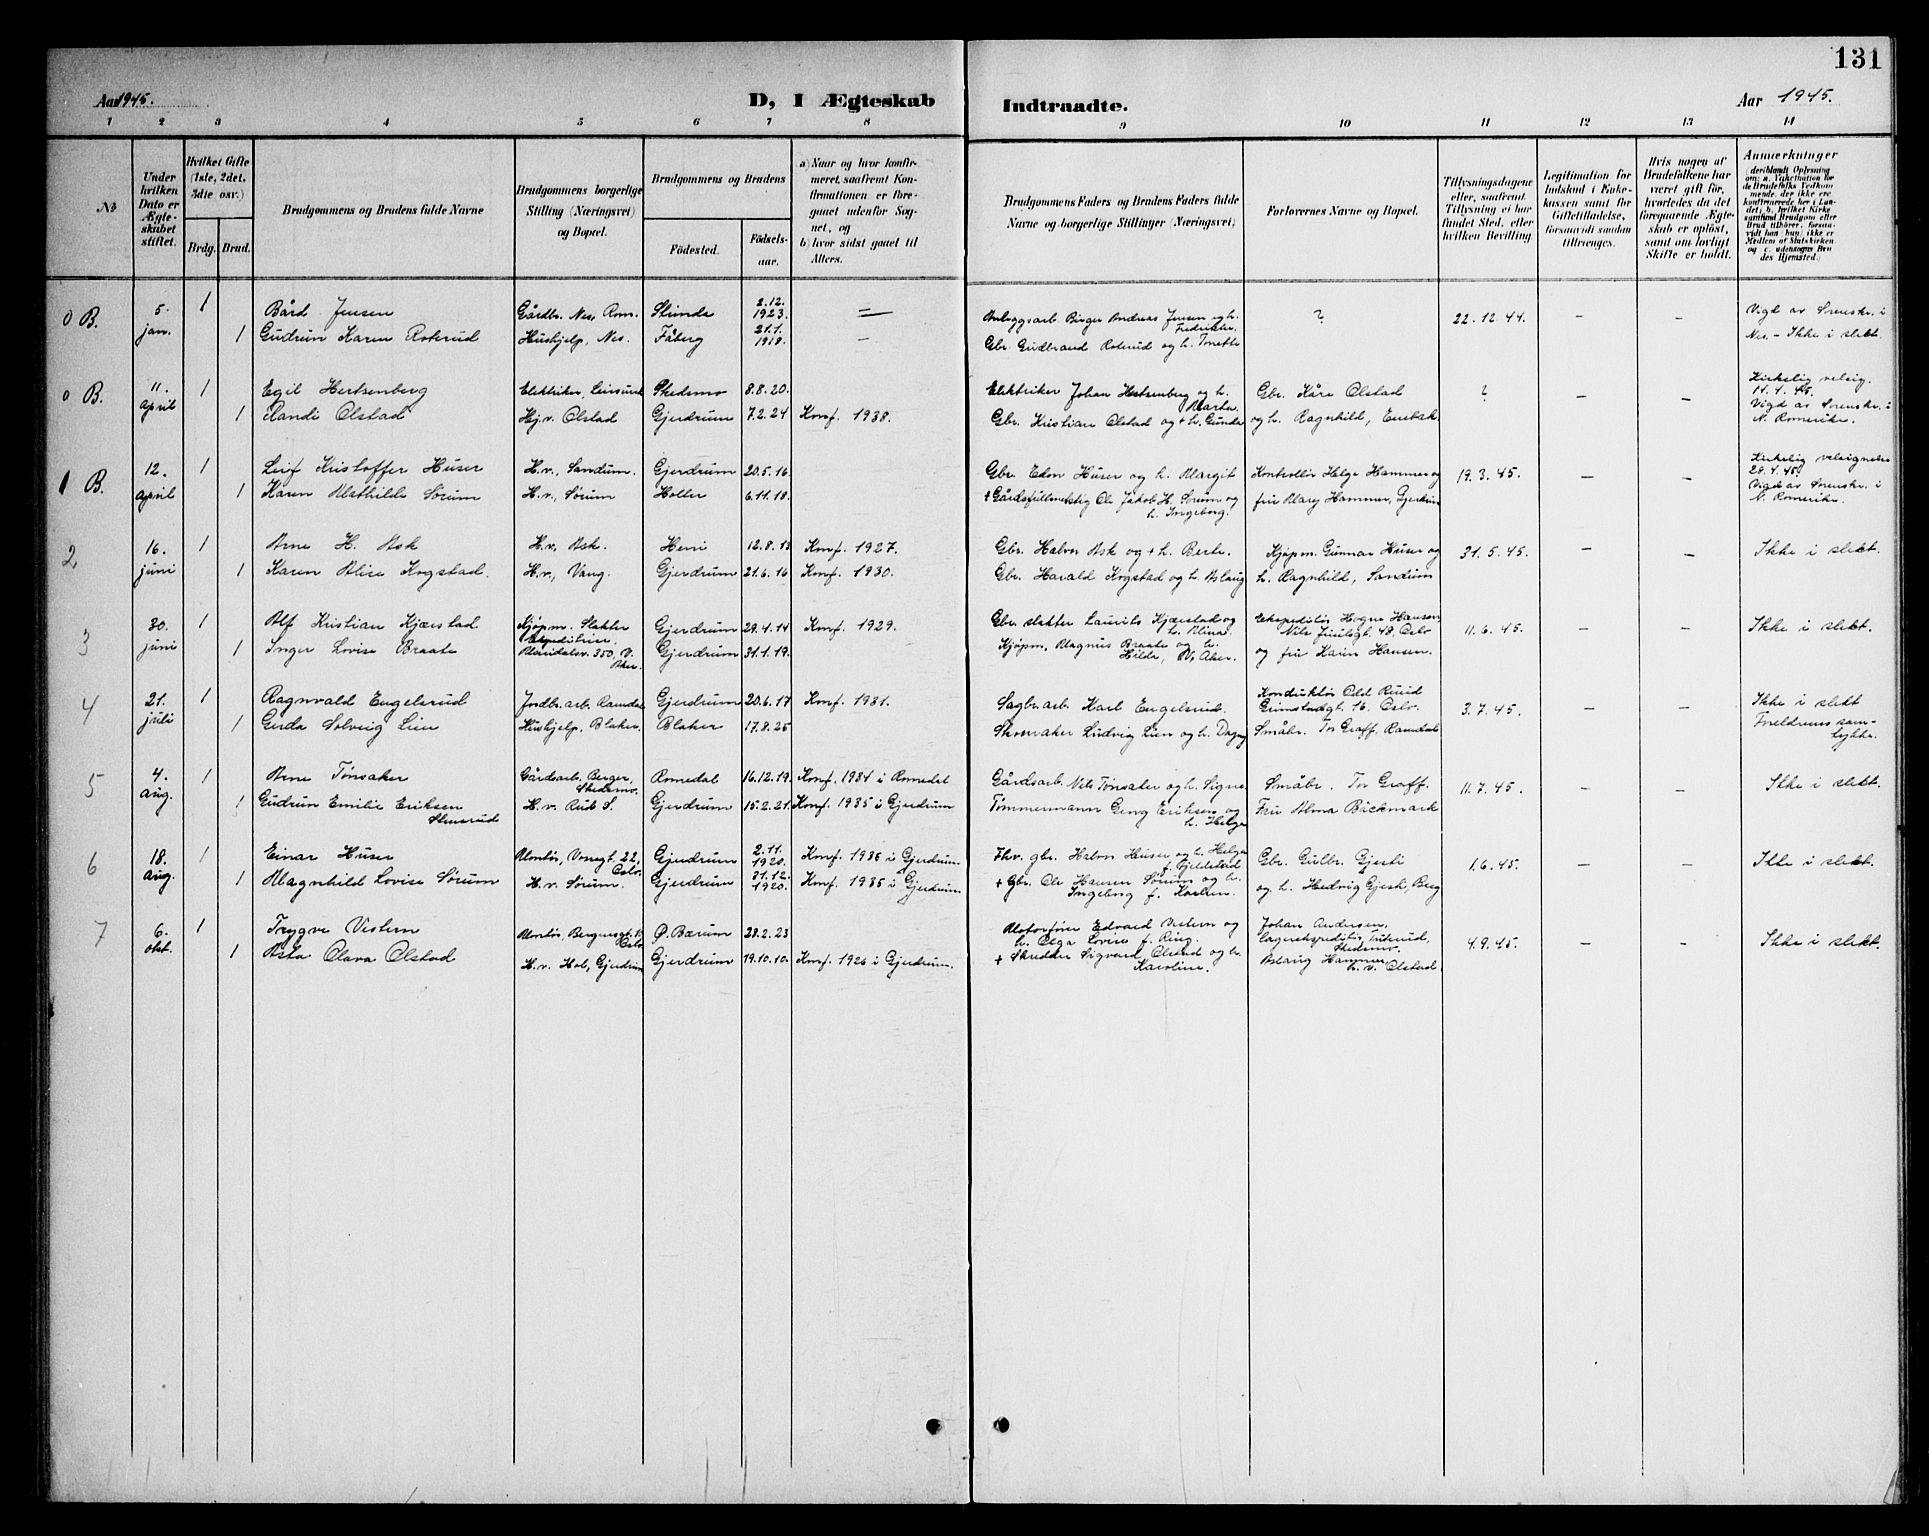 131
Aar 1945.
D, I Ægteskab
Indtraadte.
Aar 1945.
1 2 3 4 5 6 7 8 9 10 11 12 13 14
No
Under hvilken Dato er Ægteskabet stiftet.
Hvilket Gifte (1ste, 2det, 3die osv.)
Brdg. Brud.
Brudgommens og Brudens fulde Navne
Brudgommens borgerlige Stilling (Næringsvei) og Bopæl.
Brudgommens og Brudens
Födested.
Födselsaar.
a) Naar og hvor konfirmeret, saafremt Konfirmationen er foregaaet udenfor Sognet, og
b) hvor sidst gaaet til Alters.
Brudgommens Faders og Brudens Faders fulde Navne og borgerlige Stillinger (Næringsvei)
Forlovernes Navne og Bopæl.
Tillysningsdagene eller, saafremt Tillysning ei har fundet Sted, efter hvilken Bevilling.
Legitimation for Indskud i Enkekassen samt for Giftetilladelse, forsaavidt saadan tiltrænges.
Hvis nogen af Brudefolkene har været gift för, hvorledes da det foregaaende Ægteskab er oplöst, samt om lovligt Skifte er holdt.
Anmærkninger
(deriblandt Oplysning om: a. Vakcination for de Brudefolks Vedkommende, der ikke ere konfirmerede her i Landet; b. hvilket Kirkesamfund Brudgom eller Brud tilhörer, forsaavidt han (hun) ikke er Medlem af Statskirken og c. udensogns Brudes Hjemsted.)
0 B. 5. jan. 1 Bård Jensen Gårdbr. Nes, Rom. 2.12. 1923. — Anleggsarb. Birger Andreas Jensen og h. ? 22.12.44. – – Vigd av Sorenskr. i
1 Gudrun Karen Roterud Hushjelp, Nes. Fåberg 21.1. 1918. – Gbr. Gudbrand Roterud og h. Nes. – Ikke i slekt.
0 B. 11. april 1 Egil Hertsenberg Elektriker, Leirsund Skedsmo 8.8.20. Elektriker Johan Hertsenberg og h. Marta. Gbr. Kåre Olstad ? – – Kirkelig velsig. 14.4.45.
1 Randi Olstad Hj.v. Olstad Gjerdrum 7.2.24 Konf. 1938. Gbr. Kristian Olstad og + h. Gunda og h. Ragnhild, Enebak Vigd av Sorenskr. i N. Romerike.
1 B. 12. april 1 Leif Kristoffer Huser H.v., Sandum. Gjerdrum 20.5.16 Gbr. Edv. Huser og h. Margit Kontrollör Helge Hammer og 19.3.45. – – Kirkelig velsignelse 28.4.45.
1 Karen Mathilde Sørum H.v., Sørum Holter 6.11.18. + Ole Jakob H. Sørum og h. Ingeborg. fru Mary Hammer, Gjerdrum Vigd av Sorenskr. i N. Romerike.
2 16. juni 1 Arne H. Ask H.v., Ask. 12.8.13 Konf. 1927. Gbr. Halvor Ask og + h. Berte. Kjøpm. Gunnar Huser og 31.5.45. – – Ikke i slekt.
1 Karen Alise Kogstad. H.v., Vang. Gjerdrum 21.6.16 Konf. 1930. Gbr. Harald Kogstad og h. Aslaug h. Ragnhild, Sandum
3 30. juni 1 Alf Kristian Kjærstad Kjøpm. Slakter Gjerdrum 29.4.14 Konf. 1929. Gbr. slakter Laurits Kjærstad og h. Alina. Ekspeditör Hogne Hansen, Nils 48, Oslo 11.6.45. – – Ikke i slekt.
1 Inger Lovise Braate 350, V. Aker. Gjerdrum 31.1.19. Kjøpm. Magnus Braate og h. Hilda, V. Aker. og fru Karin Hansen.
4 21. juli 1 Ragnvald Engelsrud Jordbr.arb. Ramdal Gjerdrum 20.6.17 Konf. 1931. Sagbr.arb. Karl Engelsrud. Konduktör Odd Ruud Grimstadgt. 16, Oslo. 3.7.45. – – Ikke i slekt
1 Gerda Solveig Lien Hushjelp, Blaker. Blaker 17.8.25 Skomaker Ludvig Lien og h. Dagny Småbr. Tor Graff, Ramdal Foreldrenes samtykke.
5 4. aug. 1 Arne Tønsaker Gårdsarb. Berger, Skedsmo. Romedal 16.12.19. Konf. 1934 i Romedal Gårdsarb. Nils Tønsaker og h. Signe Småbr. Tor Graff. 11.7.45. – – Ikke i slekt.
1 Gudrun Emilie Eriksen Stensrud H.v. Rud S. Gjerdrum 15.2.21. Konf. 1935 i Gjerdrum Tømmermann Georg Eriksen og h. Helga Fru Alma Bäckmark
6 18. aug. 1 Einar Huser Montör, 22, Oslo. Gjerdrum 2.11. 1920. Konf. 1935 i Gjerdrum. Fhv. gbr. Halvor Huser og h. Helga f. Fjeldstad Gbr. Gulbr. Gjesti 1.6.45. – – Ikke i slekt.
1 Magnhild Lovise Sørum H.v. Sørum. Gjerdrum 31.12. 1920. Konf. 1935 i Gjerdrum. + Gbr. Ole Hansen Sørum og h. Ingeborg f. Karlsen. og h. Hedvig Gjesti, Berg
7 6. okt. 1 Trygve Vestern Montör, Bergensgt. Oslo Ø. Bærum 28.2.23 Motorförer Edvard Vestern og h. Olga Lovise f. Ring. Johan Andersen, Skedsmo. 4.9.45. – – Ikke i slekt.
1 Asta Olava Olstad H.v. Hol, Gjerdrum Gjerdrum 19.10.10. Konf. 1926 i Gjerdrum. + Skredder Sigvard Olstad og h. Karoline. Aslaug Hammer, h.v. Olstad.